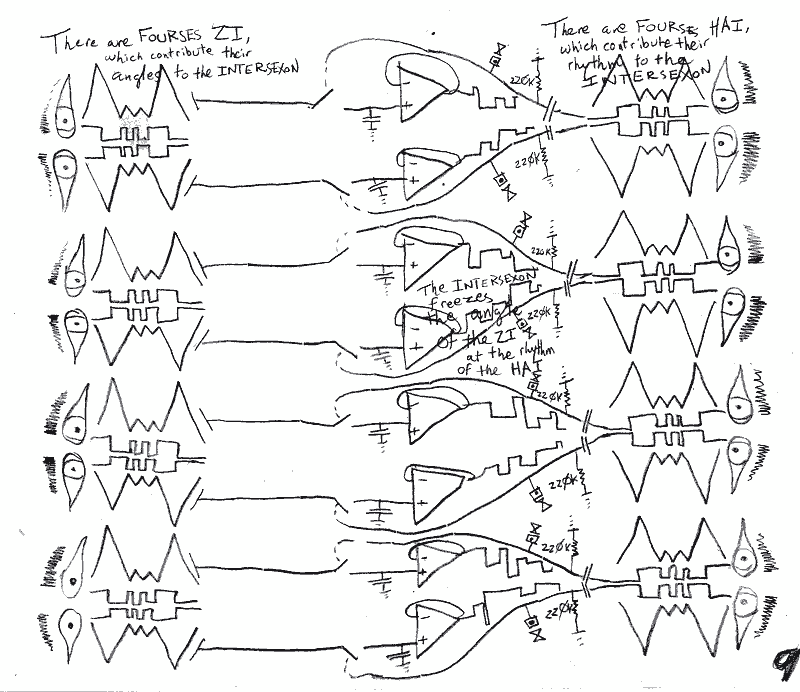 There are FOURSES ZI,
which contribute their
angles to the INTERSEXON
There are FOURSES HAI,
which contribute their
rhythm to the
INTERSEXON
220K
220K
220K
The INTERSEXON
freezes
the angle
of the ZI
at the rhythm
of the HAI
220K
220K
220K
220K
220K
9